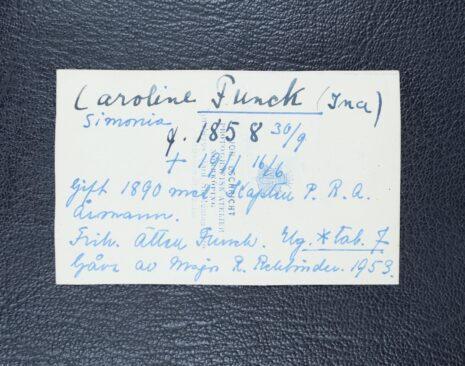 Caroline Funck (Ina)
Simonia
f. 1858 30/9
† 1911 16/6
Gift 1890 med Kapten P. R. A.
Årmann.
Frih. Ätten Funck. Elg. * tab. 7
Gåva av Major R. Rehbinder. 1953.